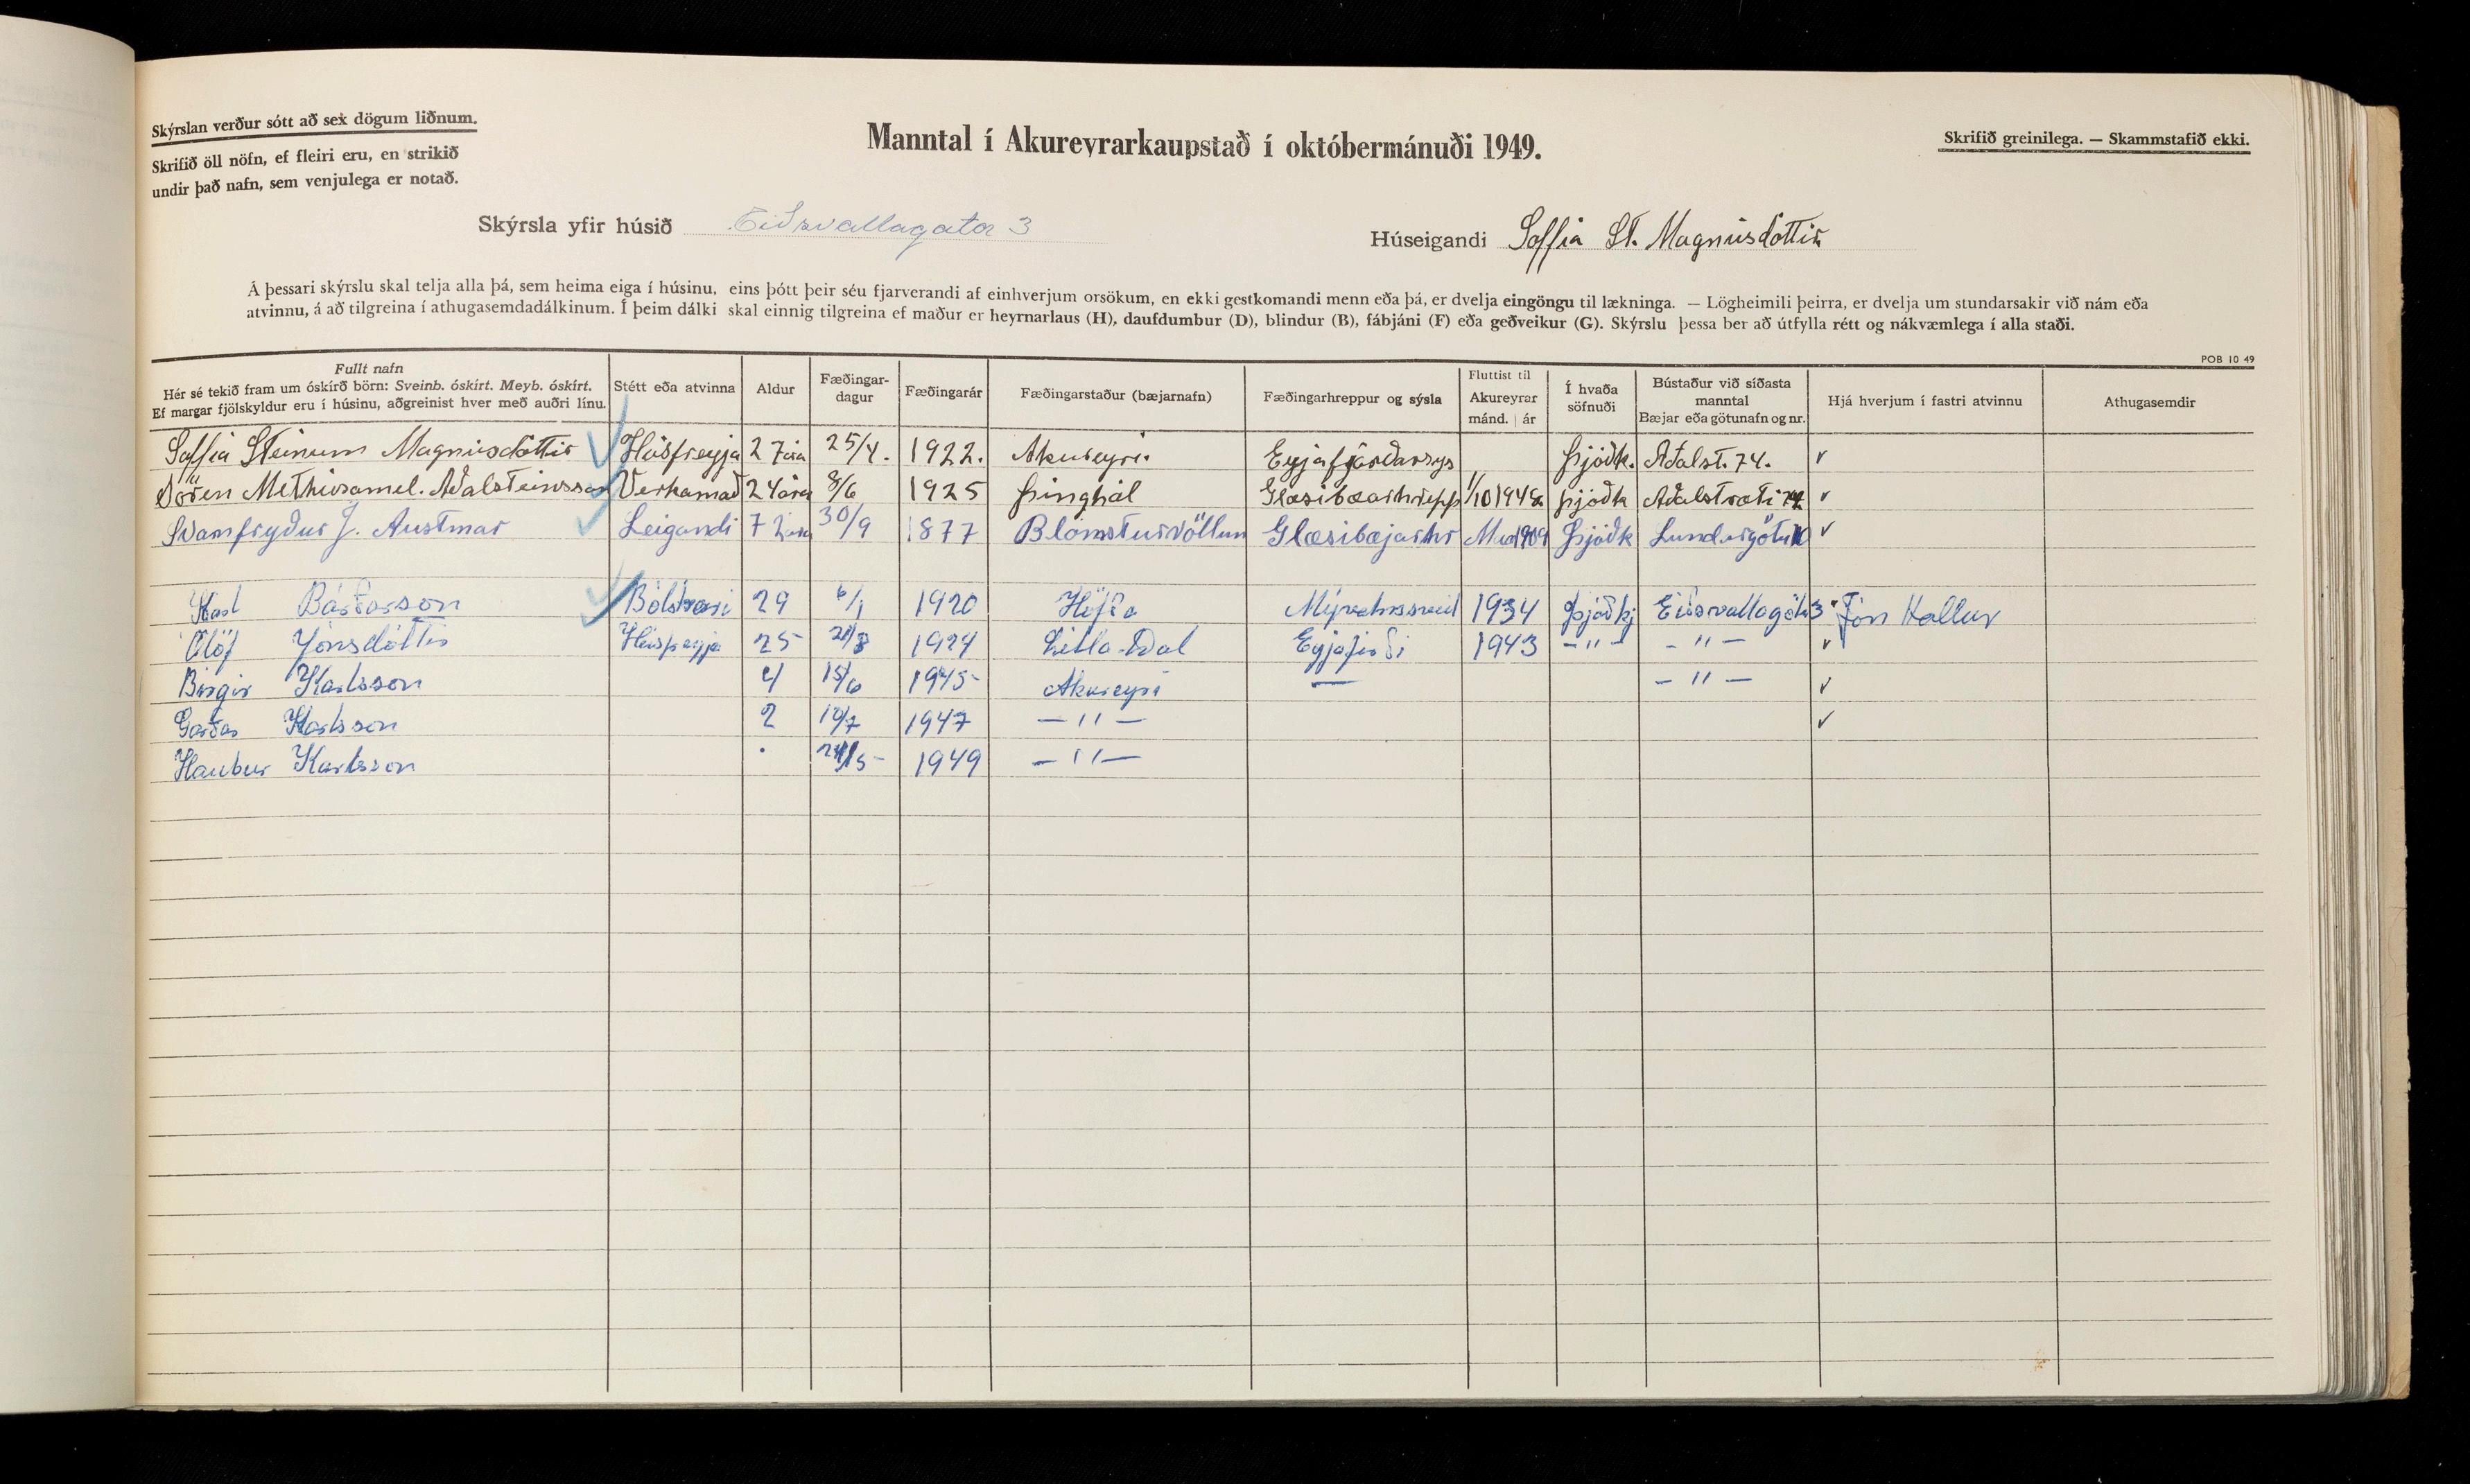 Skýrslan verður sótt að sex dögum liðnum.
Skrifið öll nöfn, ef fleiri eru, en strikið
undir það nafn, sem venjulega er notað.
Manntal í Akureyrarkaupstað í októbermánuði 1949.
Skrifið greinilega. — Skammstafið ekki.
Skýrsla yfir húsið Eiðsvallagata 3
Húseigandi Soffia St. Magnúsdóttir
Á þessari skýrslu skal telja alla þá, sem heima eiga í húsinu, eins þótt þeir séu fjarverandi af einhverjum orsökum, en ekki gestkomandi menn eða þá, er dvelja eingöngu til lækninga. — Lögheimili þeirra, er dvelja um stundarsakir við nám eða
atvinnu, á að tilgreina í athugasemdadálkinum. Í þeim dálki skal einnig tilgreina ef maður er heyrnarlaus (H), daufdumbur (D), blindur (B), fábjáni (F) eða geðveikur (G). Skýrslu þessa ber að útfylla rétt og nákvæmlega í alla staði.
POB 10 49
Fullt nafn
Hér sé tekið fram um óskírð börn: Sveinb. óskírt. Meyb. óskírt.
Ef margar fjölskyldur eru í húsinu, aðgreinist hver með auðri línu.
Stétt eða atvinna
Aldur
Fæðingar-
dagur
Fæðingarár
Fæðingarstaður (bæjarnafn)
Fæðingarhreppur og sýsla
Fluttist til
Akureyrar
mánd. | ár
Í hvaða
söfnuði
Bústaður við síðasta
manntal
Bæjar eða götunafn og nr.
Hjá hverjum í fastri atvinnu
Athugasemdir
Soffia Steinunn Magnúsdóttir Húsfreyja 27 ára 25/4. 1922. Akureyri. Eyjafjarðarsys Þjóðk. Aðalst. 74.
Sören Aðalsteinsson Verkamað 24 ára 8/6 1925 Þinghól Glæsibæarhrepp 1/10 Þjóðk Aðalstræti 74
Svanfryður J. Austmar Leigandi 72 ára 30/9 1877 Blómsturvöllum Glæsibæjarhr 1909 Þjóðk Lundargötu 10
Karl Bárðarson Bólstrari 29 6/1 1920 Höfða Mývatnssveit 1934 Þjóðkj Eiðsvallagötu 3 Jón Hallur
Ólöf Jónsdóttir Húsfreyja 25 1924 Litla-Dal Eyjafirði 1943 —〃— —〃—
Birgir Karlsson 4 15/6 1945 Akureyri — —〃—
Garðar Karlsson 2 10/7 1947 —〃—
Haukur Karlsson 1949 —〃—